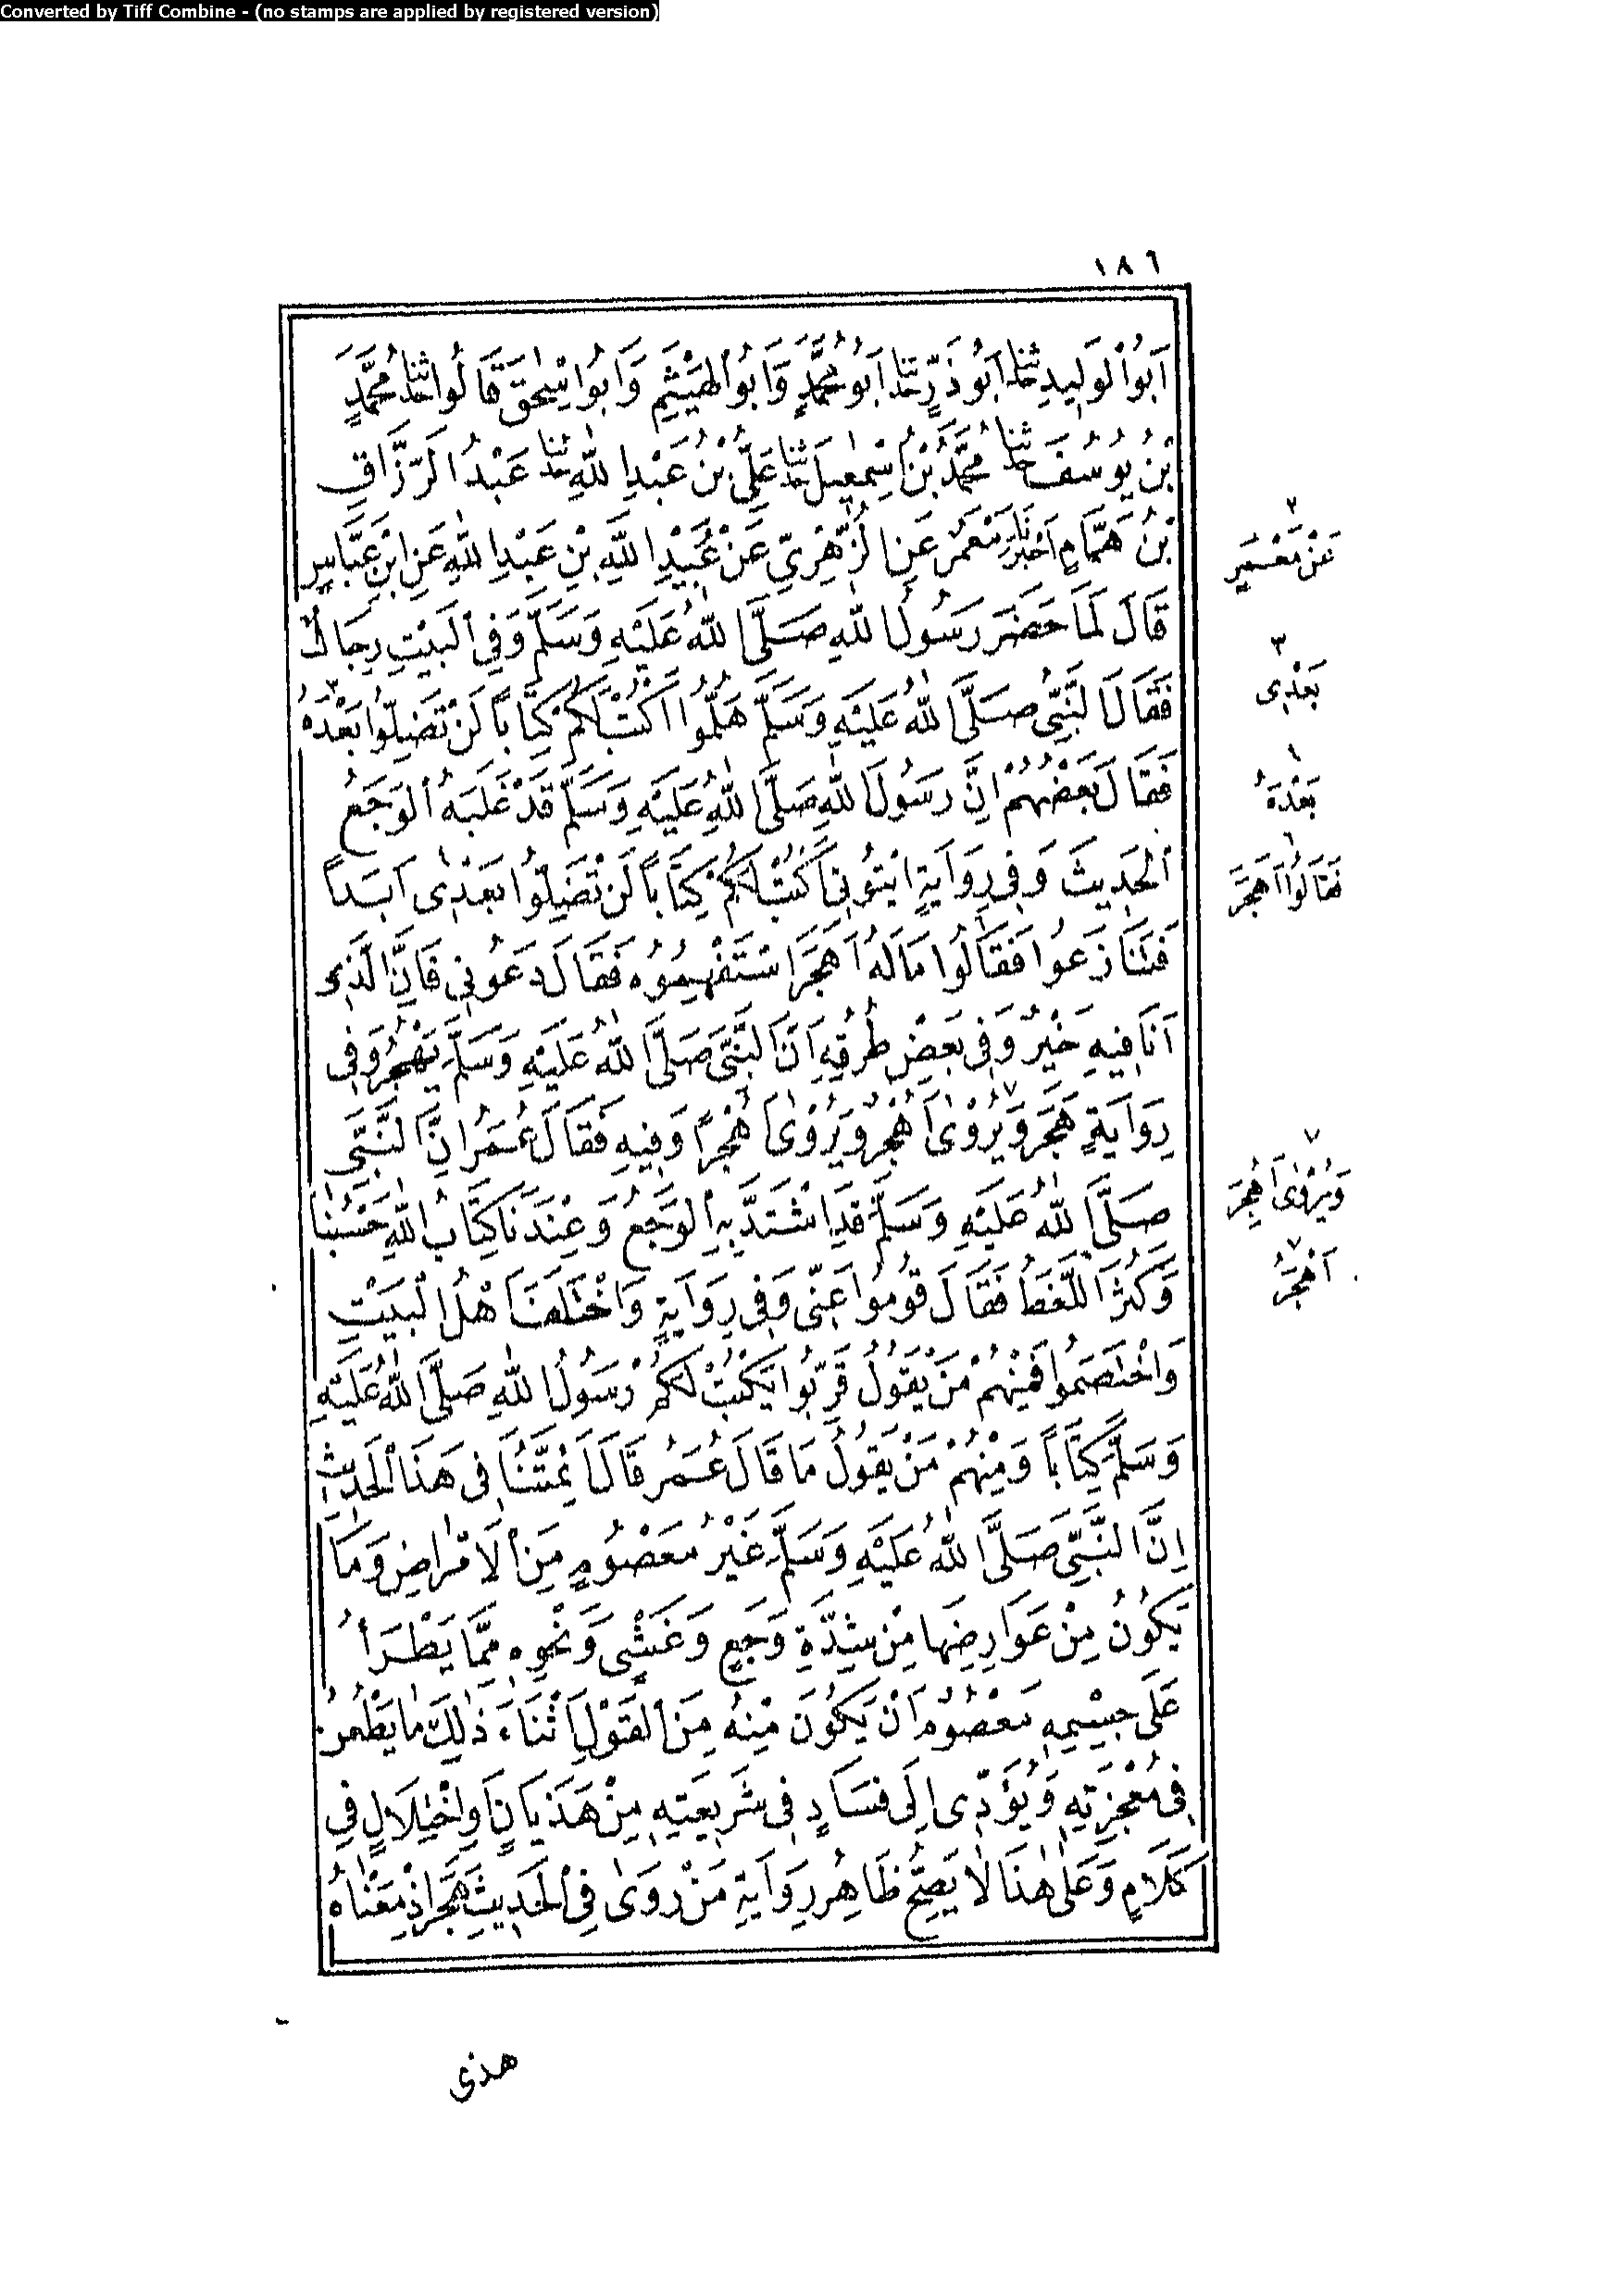 Converted by Tiff Combine - (no stamps are applied by registered version)
١٨٦
اَبُو الْوَلِيدِ حَدَّثَنَا اَبُو ذَرٍّ حَدَّثَنَا اَبُو مُحَمَّدٍ وَاَبُو الْهَيْثَمِ وَاَبُو اِسْحٰقَ قَالُوا حَدَّثَنَا مُحَمَّدُ
بْنُ يُوسُفَ حَدَّثَنَا مُحَمَّدُ بْنُ اِسْمٰعِيلَ حَدَّثَنَا عَلِيُّ بْنُ عَبْدِ اللّٰهِ حَدَّثَنَا عَبْدُ الرَّزَّاقِ
بْنُ هَمَّامٍ اَخْبَرَنَا مَعْمَرٌ عَنِ الزُّهْرِيِّ عَنْ عُبَيْدِ اللّٰهِ بْنِ عَبْدِ اللّٰهِ عَنِ ابْنِ عَبَّاسٍ
قَالَ لَمَّا حَضَرَ رَسُولُ اللّٰهِ صَلَّى اللّٰهُ عَلَيْهِ وَسَلَّمَ وَفِي الْبَيْتِ رِجَالٌ
فَقَالَ النَّبِيُّ صَلَّى اللّٰهُ عَلَيْهِ وَسَلَّمَ هَلُمُّوا اَكْتُبْ لَكُمْ كِتَاباً لَنْ تَضِلُّوا بَعْدَهُ
فَقَالَ بَعْضُهُمْ اِنَّ رَسُولَ اللّٰهِ صَلَّى اللّٰهُ عَلَيْهِ وَسَلَّمَ قَدْ غَلَبَهُ الْوَجَعُ
الْحَدِيثَ وَفِي رِوَايَةٍ ائْتُونِي اَكْتُبْ لَكُمْ كِتَاباً لَنْ تَضِلُّوا بَعْدِى اَبَداً
فَتَنَازَعُوا فَقَالُوا مَالَهُ اَهَجَرَ اسْتَفْهِمُوهُ فَقَالَ دَعُونِي فَاِنَّ الَّذِى
اَنَا فِيهِ خَيْرٌ وَفِي بَعْضِ طُرُقِهِ اَنَّ النَّبِيَّ صَلَّى اللّٰهُ عَلَيْهِ وَسَلَّمَ يَهْجُرُ وَفِي
رِوَايَةٍ هَجَرَ وَيُرْوٰى اَهُجْرٌ وَيُرْوٰى اَهُجْراً وَفِيهِ فَقَالَ عُمَرُ اِنَّ النَّبِيَّ
صَلَّى اللّٰهُ عَلَيْهِ وَسَلَّمَ قَدِ اشْتَدَّ بِهِ الْوَجَعُ وَعِنْدَنَا كِتَابُ اللّٰهِ حَسْبُنَا
وَكَثُرَ اللَّغَطُ فَقَالَ قُومُوا عَنِّى وَفِي رِوَايَةٍ وَاخْتَلَفَ اَهْلُ الْبَيْتِ
وَاخْتَصَمُوا فَمِنْهُمْ مَنْ يَقُولُ قَرِّبُوا يَكْتُبْ لَكُمْ رَسُولُ اللّٰهِ صَلَّى اللّٰهُ عَلَيْهِ
وَسَلَّمَ كِتَاباً وَمِنْهُمْ مَنْ يَقُولُ مَا قَالَ عُمَرُ قَالَ اَئِمَّتُنَا فِي هَذَا الْحَدِيثِ
اِنَّ النَّبِيَّ صَلَّى اللّٰهُ عَلَيْهِ وَسَلَّمَ غَيْرُ مَعْصُومٍ مِنَ الْاَمْرَاضِ وَمَا
يَكُونُ مِنْ عَوَارِضِهَا مِنْ شِدَّةِ وَجَعٍ وَغَشْىٍ وَنَحْوِهِ مِمَّا يَطْرَأُ
عَلَى جِسْمِهِ مَعْصُومٌ اَنْ يَكُونَ مِنْهُ مِنَ الْقَوْلِ اَثْنَاءَ ذٰلِكَ مَا يَطْعُنُ
فِي مُعْجِزَتِهِ وَيُؤَدِّى اِلَى فَسَادٍ فِي شَرِيعَتِهِ مِنْ هَذَيَانٍ اَوِ اخْتِلَالٍ فِي
كَلَامٍ وَعَلٰى هٰذَا لَا يَصِحُّ ظَاهِرُ رِوَايَةِ مَنْ رَوٰى فِي الْحَدِيثِ هَجَرَ اِذْ مَعْنَاهُ
٧
عَنْ مَعْمَرٍ
٣
بَعْدِى
٦
بَعْدَهُ
٦
فَقَالُوا اَهَجَرَ
٧
وَيُرْوٰى اَهُجِرَ
٧
اَهُجْرٌ
هذى